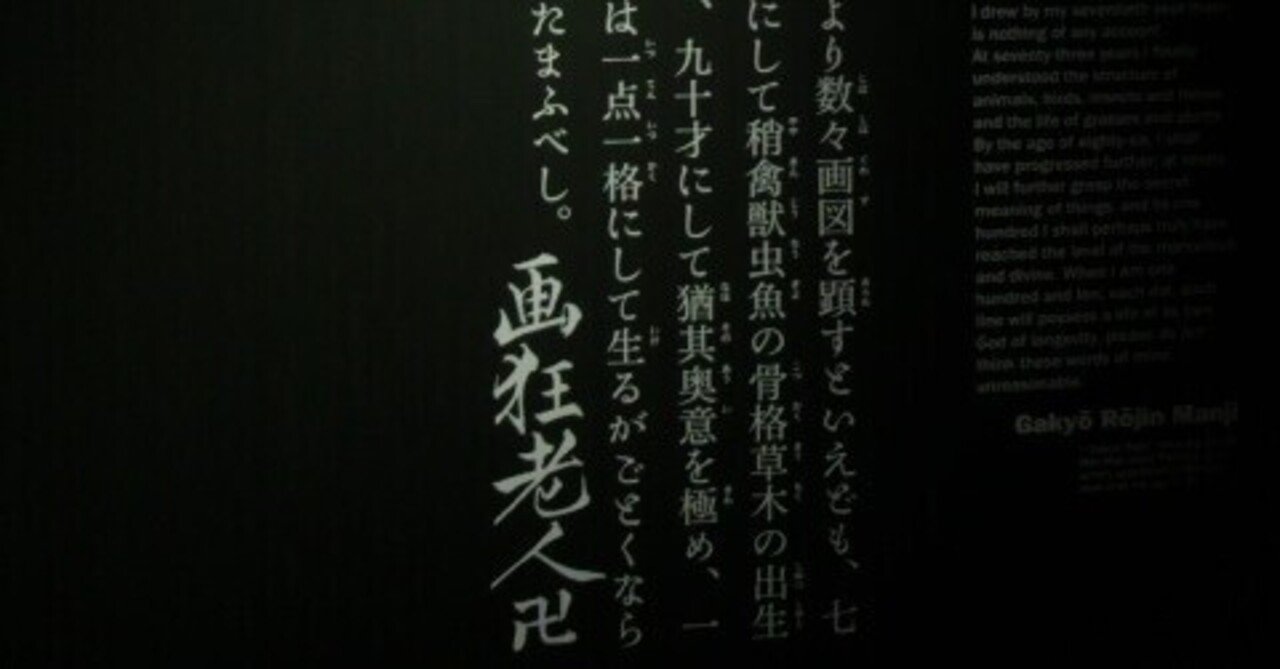 より数々画図を顕すといえども、七
にして稍禽獣虫魚の骨格草木の出生
、九十才にして猶其奥意を極め、一
は一点一格にして生るがごとくなら
たまふべし。
画狂老人卍
I drew by my seventieth year
is nothing of any account.
At seventy three years I finally
understood the structure of
animals, birds, insects and fishes
and the life of grasses and plants.
By the age of eighty-six, I shall
have progressed further; at ninety
I will further grasp the secret
meaning of things, and by one
hundred I shall perhaps truly have
reached the level of the marvellous
and divine. When I am one
hundred and ten, each dot, each
line will possess a life of its own.
God of longevity, please do not
think these words of mine
unreasonable.
Gakyō Rōjin Manji